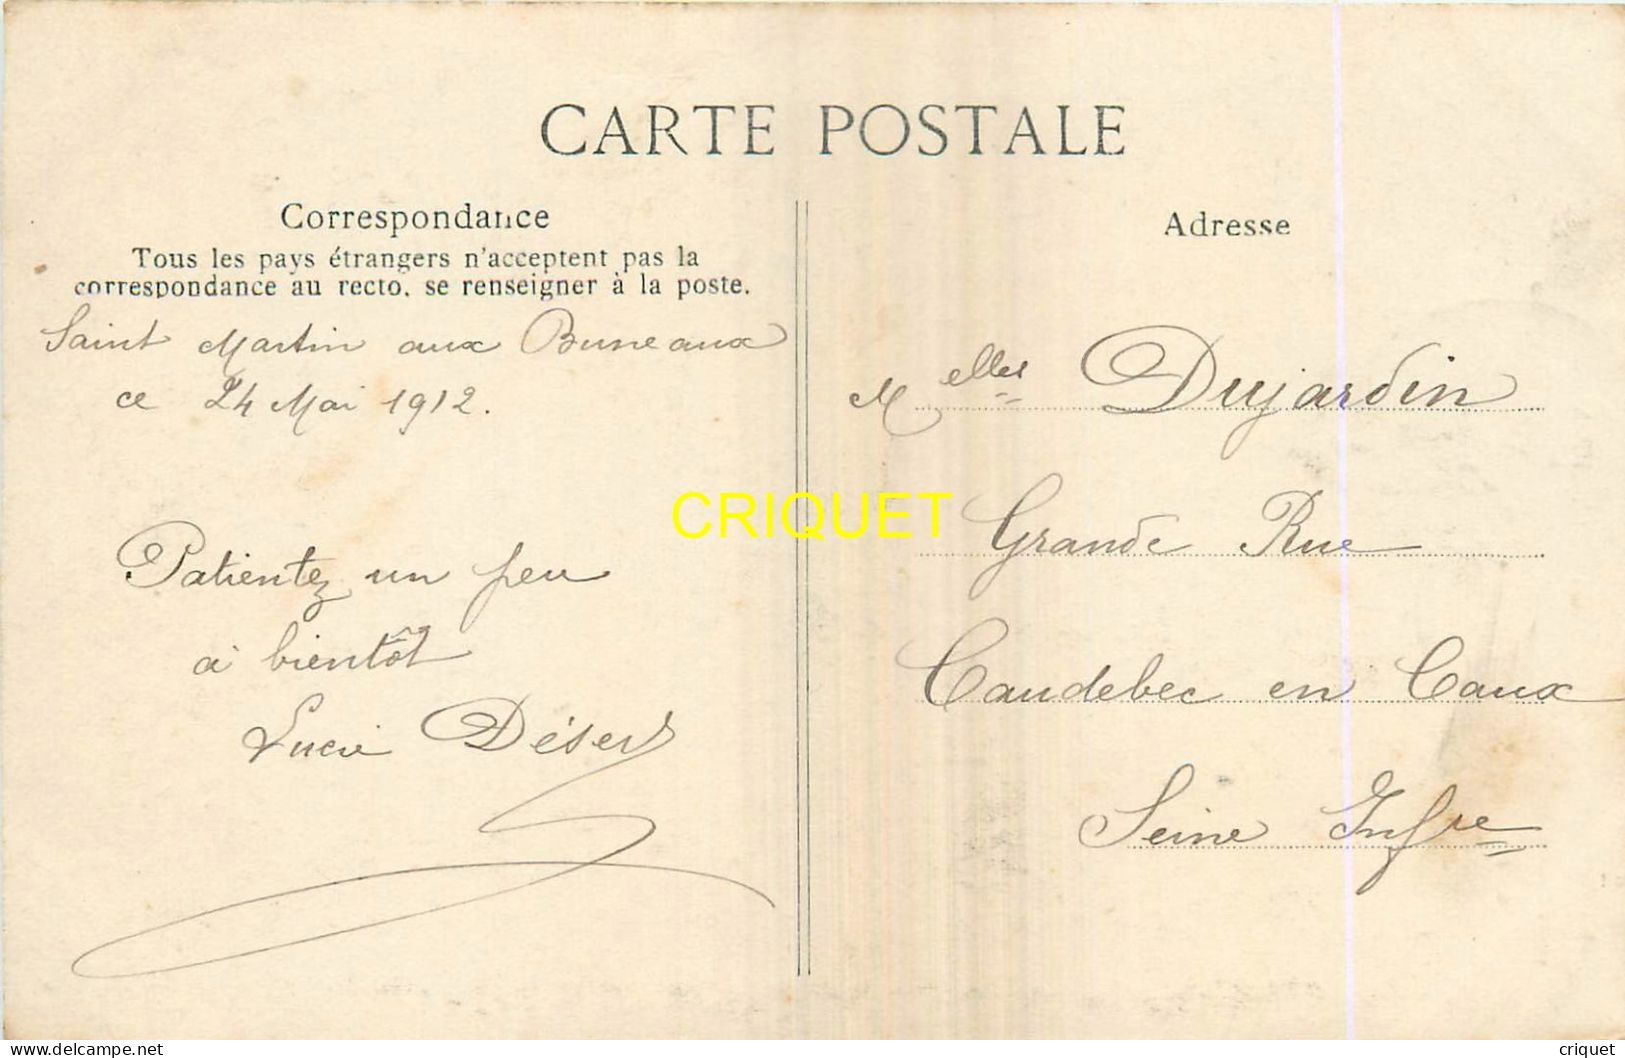 CARTE POSTALE
Correspondance
Tous les pays étrangers n'acceptent pas la
correspondance au recto, se renseigner à la poste.
Saint Martin aux Buneaux
ce 24 Mai 1912.
Patientez un peu
à bientôt
Lucie Désert
Adresse
Melles Dujardin
Grande Rue
Caudebec en Caux
Seine Infre
CRIQUET
www.delcampe.net
criquet